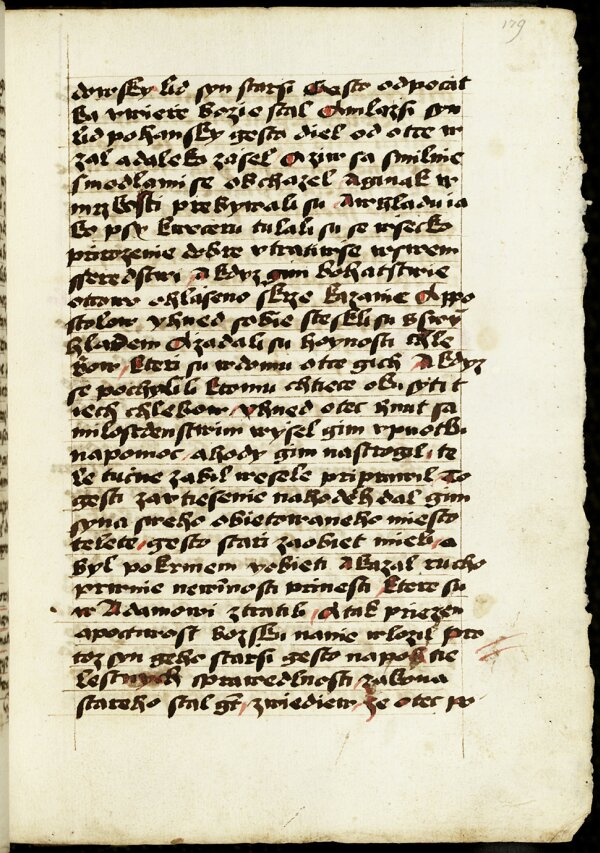 179
dowsky lid syn starsi Gesto odpocat
ku vwiere bozie stal A mlazsi syn
lid pohansky gesto diel od otce w
zal a daleko zasel A ziw sa smilnie
s modlami se obchazel A ginak w
mrzkosti prebywali su A wzhladnia
ko psy kweceru tulali su se wsecko
prirozenie dobre vtratiwse wswem
sseredstwi A kdyz gim bohatstwie
otcowo ohlaseno skrze kazanie Appo
stolow vhned sobie steskli su s swym
hladem A zadali su hoynosti chle
bow kteri su wdomu otce gich A kdyz
se pochylili ktomu chtiece obi syti t
iech chlebow vhned otec hnut sa
milosrdenstwim wysel gim vpuotbu
napomoc a hody gim nastrogil te
le tucne zabil wesele priprawil To
gest zawtiesenie nahodeh dal gim
syna sweho obietowaneho miesto
telete gesto stari zaobiet mieli a
byl pokrmem vobieti A kazal rucho
prwnie newinosti prinesti ktere su
w Adamowi ztratili A tak priezen
a poctiwost bozsku nanie wlozil Pro
toz syn geho starsi gesto napoli sie
lestnych sprawedlnosti zakona
stareho stal gest zwiediew ze otec p